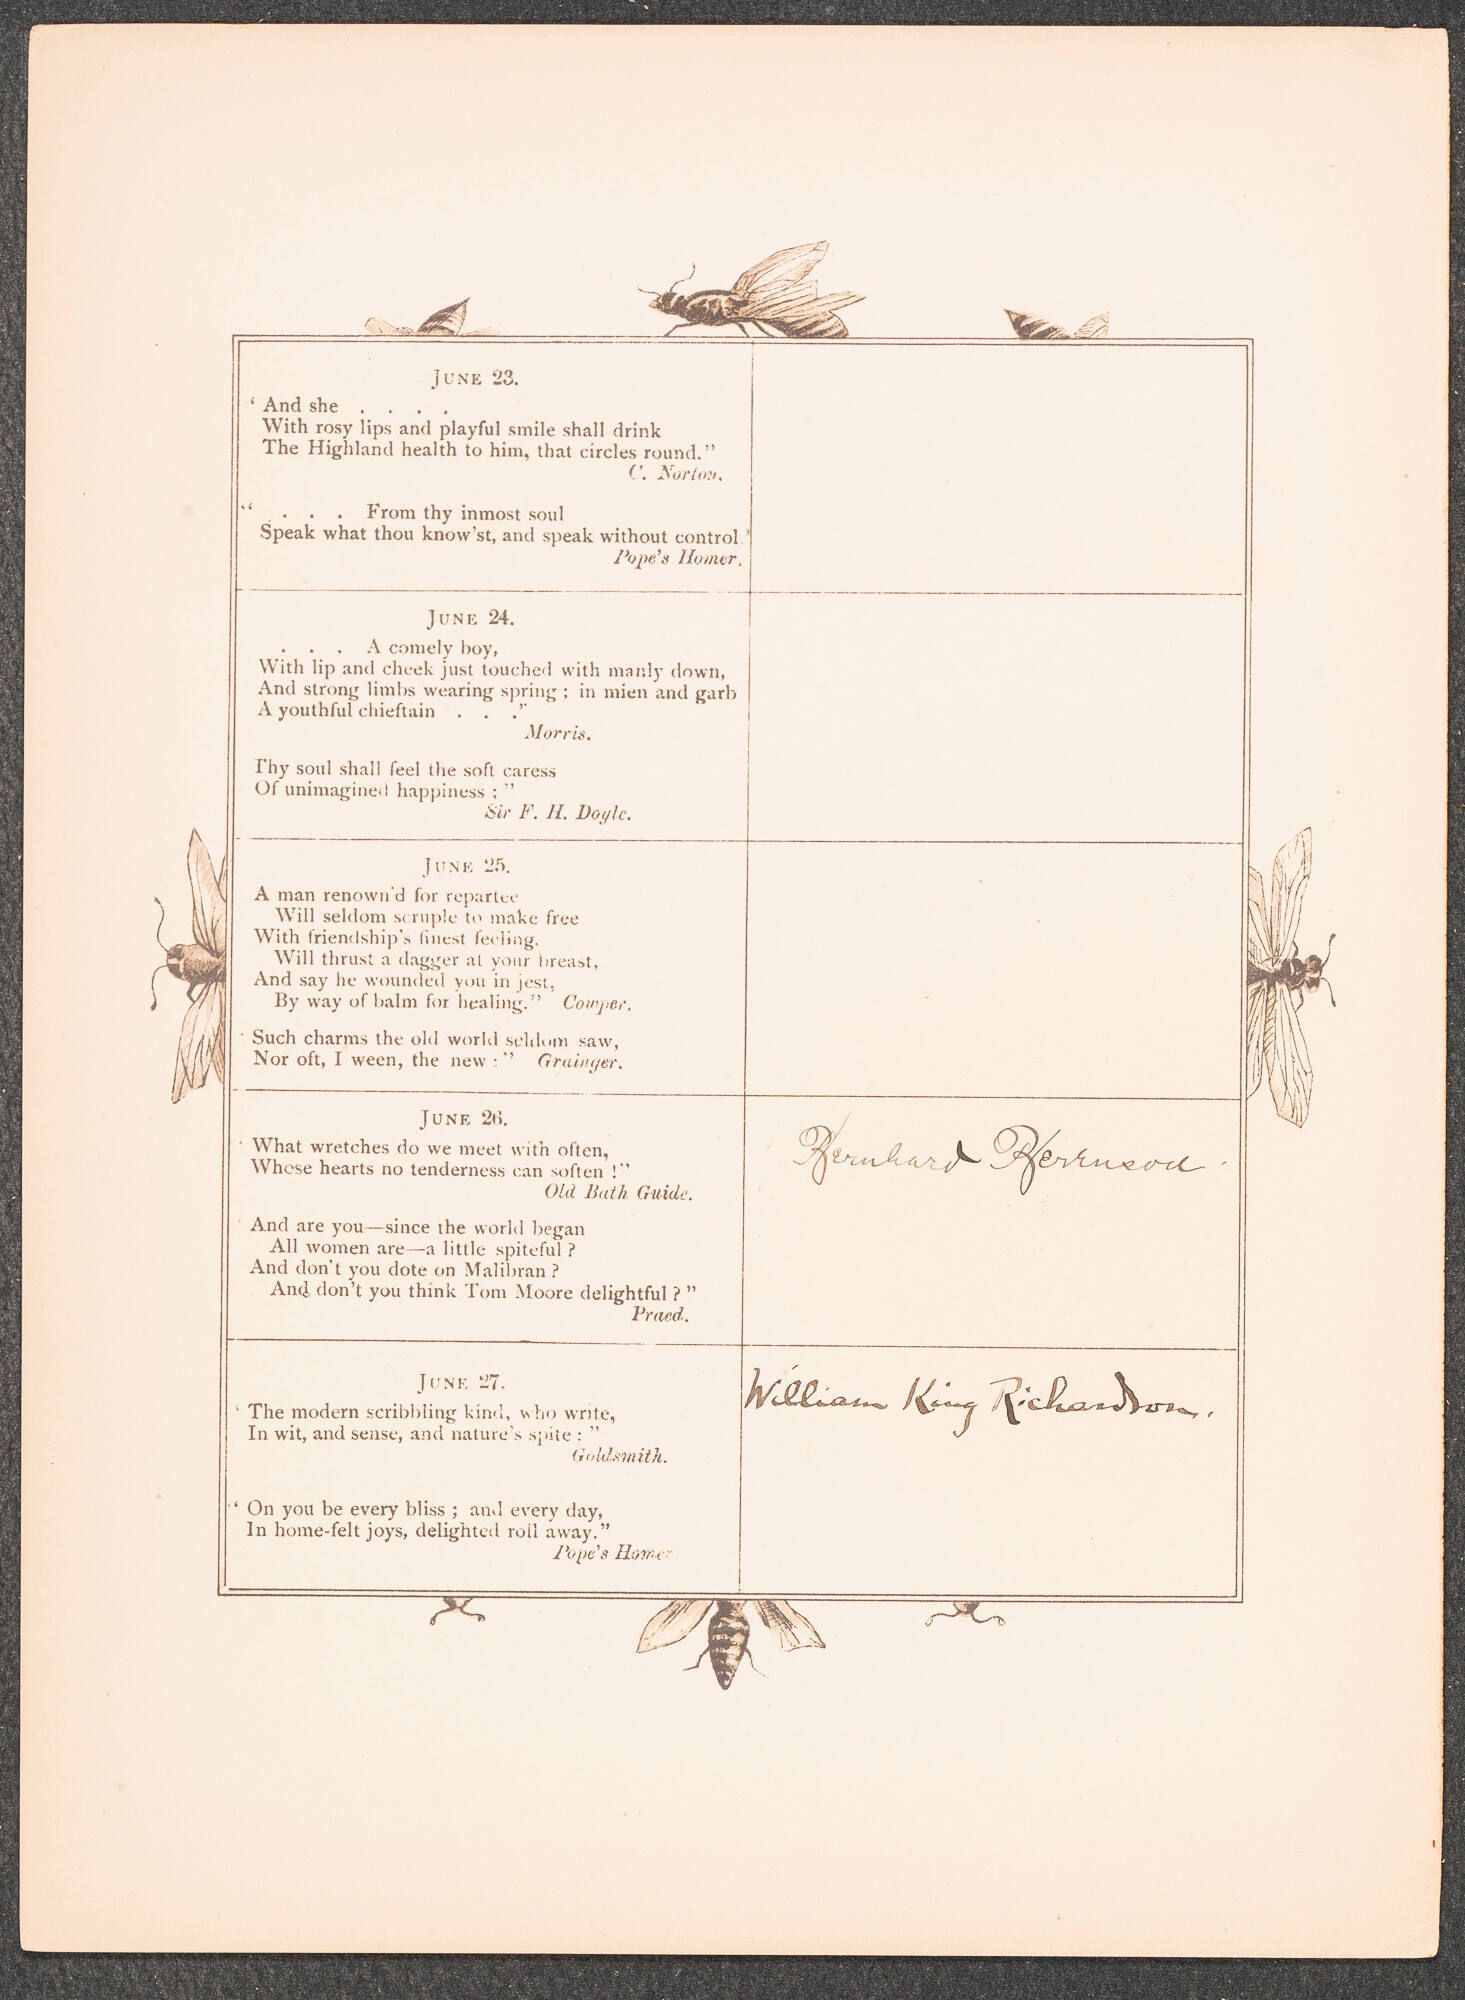 JUNE 23.
‘ And she . . . .
With rosy lips and playful smile shall drink
The Highland health to him, that circles round.”
C. Norton.
“ . . . From thy inmost soul
Speak what thou know’st, and speak without control.’
Pope’s Homer.
JUNE 24.
. . . A comely boy,
With lip and cheek just touched with manly down,
And strong limbs wearing spring ; in mien and garb
A youthful chieftain . . .”
Morris.
Thy soul shall feel the soft caress
Of unimagined happiness ; ”
Sir F. H. Doyle.
JUNE 25.
A man renown’d for repartee
Will seldom scruple to make free
With friendship’s finest feeling.
Will thrust a dagger at your breast,
And say he wounded you in jest,
By way of balm for healing.” Cowper.
Such charms the old world seldom saw,
Nor oft, I ween, the new : ” Grainger.
JUNE 26.
What wretches do we meet with often,
Whose hearts no tenderness can soften !”
Old Bath Guide.
Bernhard Berenson
And are you—since the world began
All women are—a little spiteful ?
And don’t you dote on Malibran ?
And don’t you think Tom Moore delightful ? ”
Praed.
JUNE 27.
William King Richardson.
‘ The modern scribbling kind, who write,
In wit, and sense, and nature’s spite : ”
Goldsmith.
‘ On you be every bliss ; and every day,
In home-felt joys, delighted roll away.”
Pope’s Homer